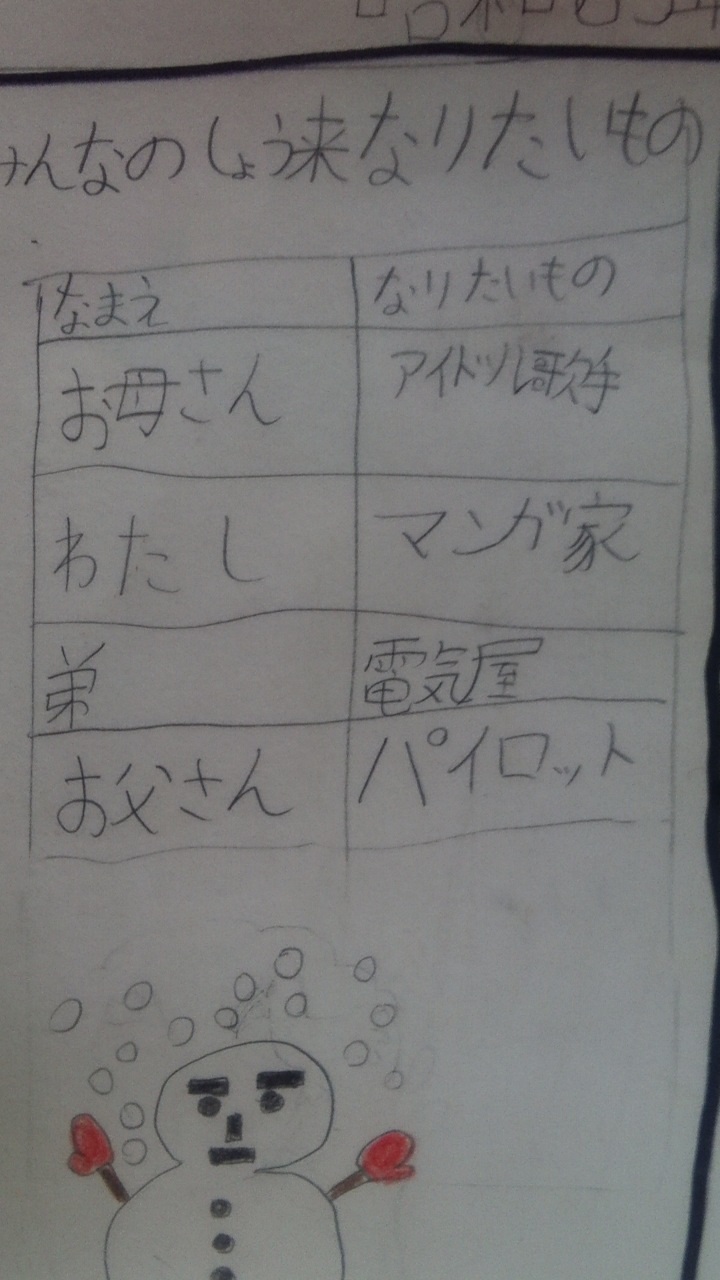 みんなのしょう来なりたいもの
なまえ なりたいもの
お母さん アイドル歌手
わたし マンガ家
弟 電気屋
お父さん パイロット